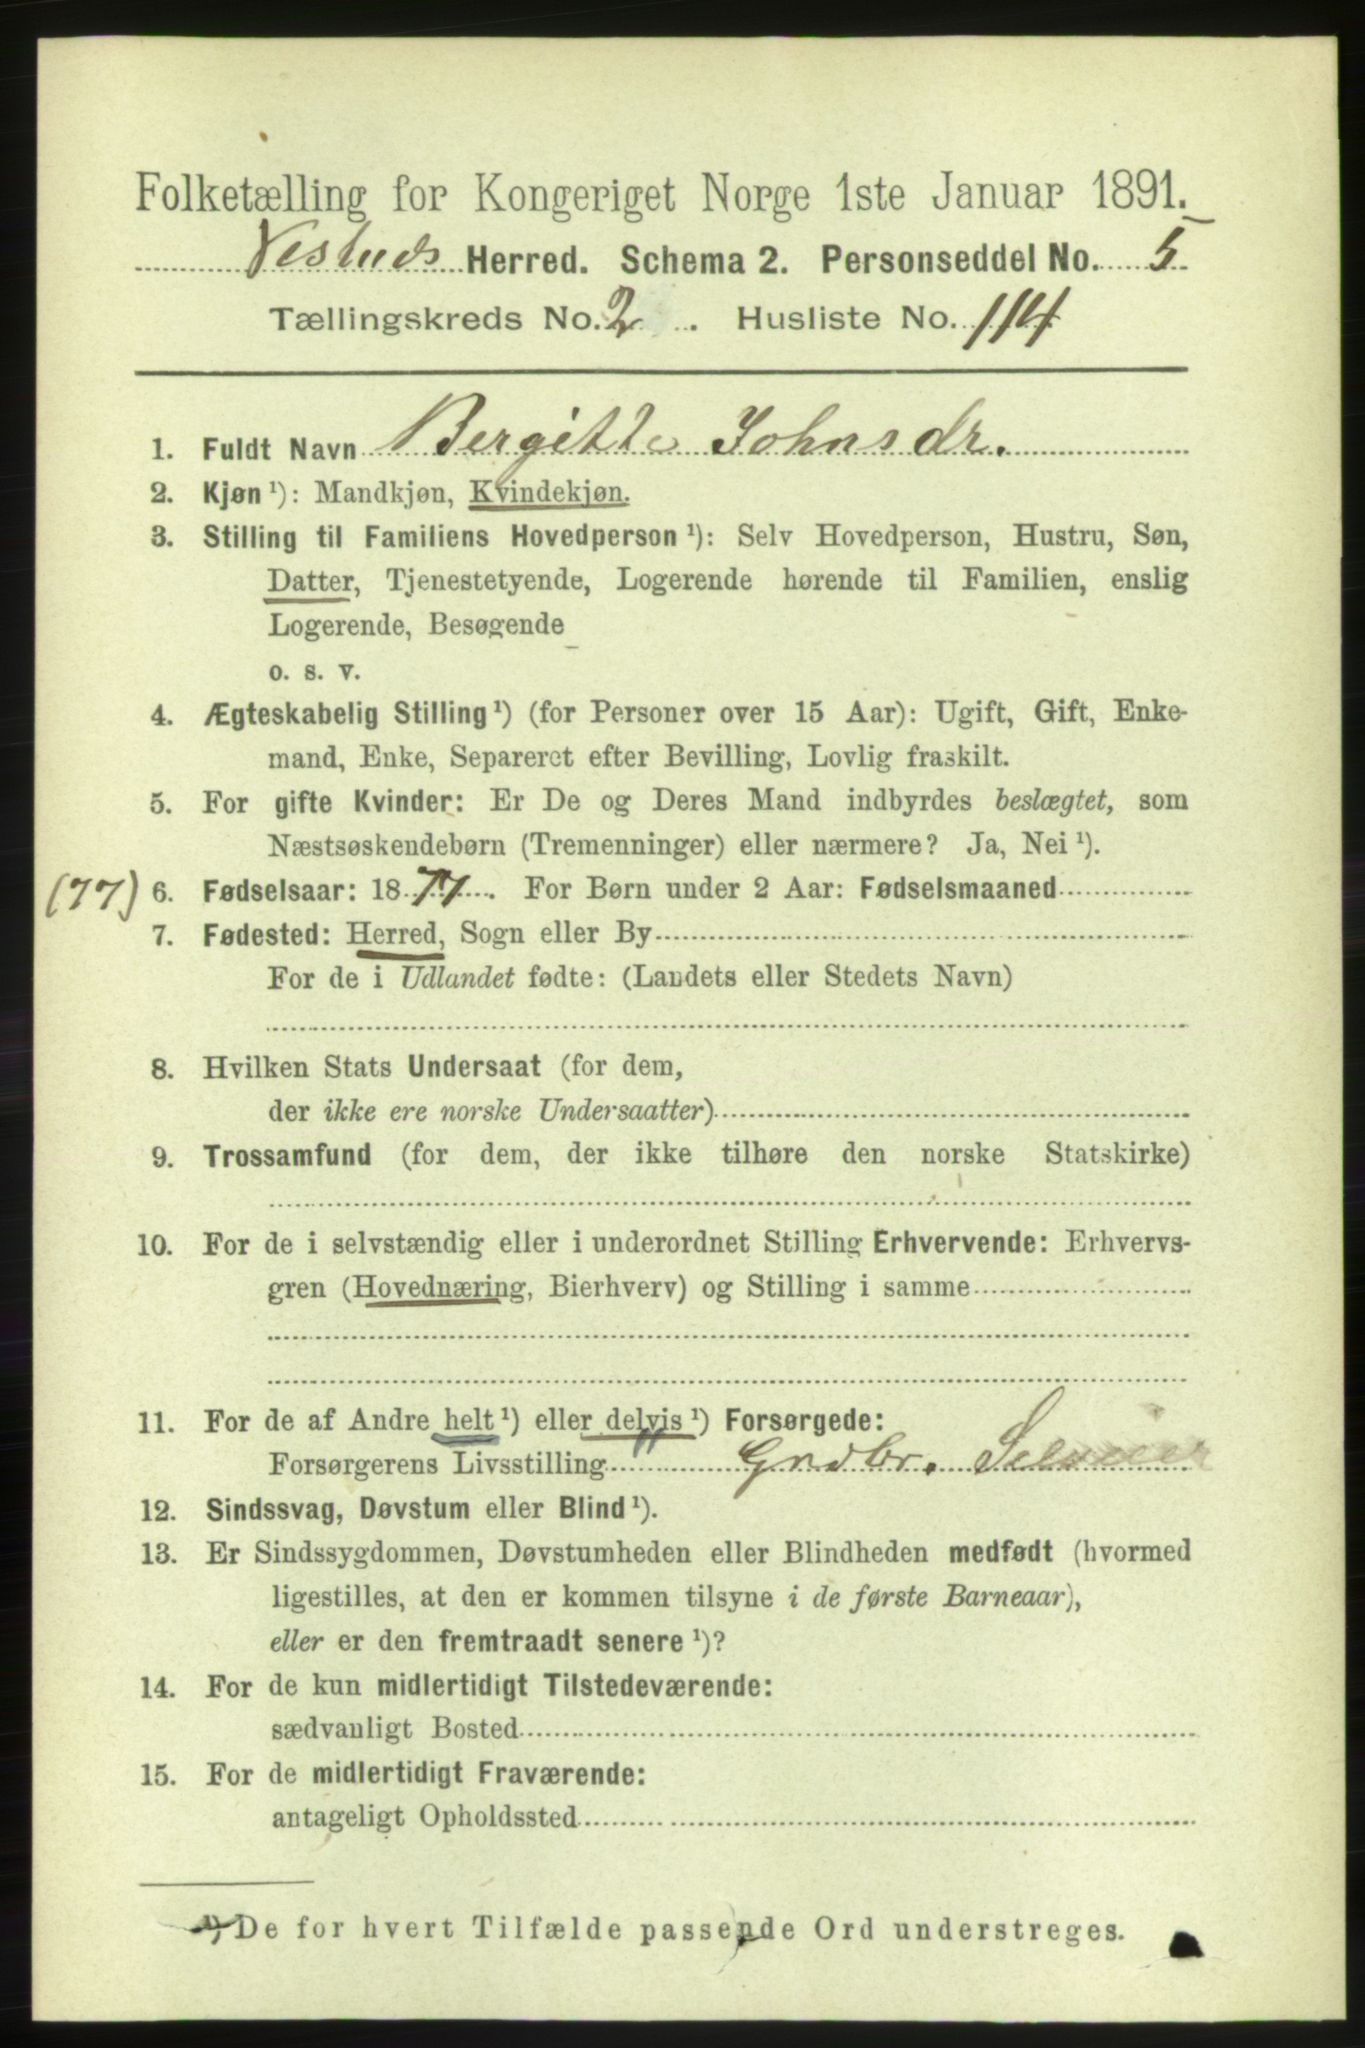 Folketælling for Kongeriget Norge 1ste Januar 1891.
Herred. Schema 2. Personseddel No. 5
Tællingskreds No. 2. Husliste No. 114
1. Fuldt Navn Bergitte Johnsdr.
2. Kjøn ¹): Mandkjøn, Kvindekjøn.
3. Stilling til Familiens Hovedperson ¹): Selv Hovedperson, Hustru, Søn,
Datter, Tjenestetyende, Logerende hørende til Familien, enslig
Logerende, Besøgende
o. s. v.
4. Ægteskabelig Stilling ¹) (for Personer over 15 Aar): Ugift, Gift, Enke-
mand, Enke, Separeret efter Bevilling, Lovlig fraskilt.
5. For gifte Kvinder: Er De og Deres Mand indbyrdes beslægtet, som
Næstsøskendebørn (Tremenninger) eller nærmere? Ja, Nei ¹).
(77) 6. Fødselsaar: 1877. For Børn under 2 Aar: Fødselsmaaned
7. Fødested: Herred, Sogn eller By
For de i Udlandet fødte: (Landets eller Stedets Navn)
8. Hvilken Stats Undersaat (for dem,
der ikke ere norske Undersaatter)
9. Trossamfund (for dem, der ikke tilhøre den norske Statskirke)
10. For de i selvstændig eller i underordnet Stilling Erhvervende: Erhvervs-
gren (Hovednæring, Bierhverv) og Stilling i samme
11. For de af Andre helt ¹) eller delvis ¹) Forsørgede:
Forsørgerens Livsstilling Grdbr.
12. Sindssvag, Døvstum eller Blind ¹).
13. Er Sindssygdommen, Døvstumheden eller Blindheden medfødt (hvormed
ligestilles, at den er kommen tilsyne i de første Barneaar),
eller er den fremtraadt senere ¹)?
14. For de kun midlertidigt Tilstedeværende:
sædvanligt Bosted
15. For de midlertidigt Fraværende:
antageligt Opholdssted
¹) De for hvert Tilfælde passende Ord understreges.